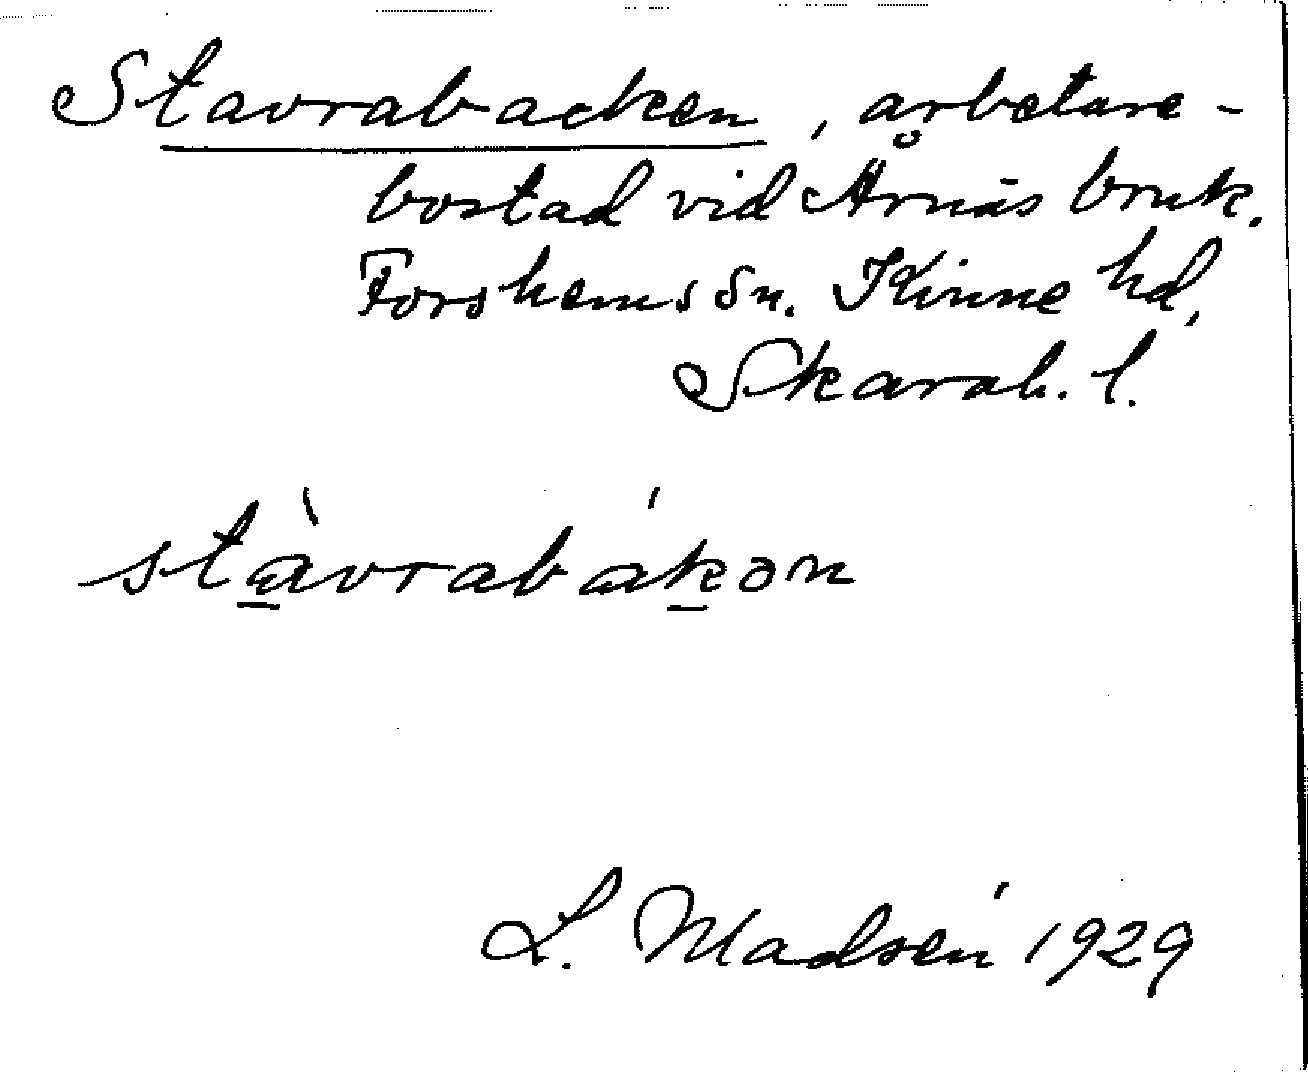 Stavrabacken, arbetare-
bostad vid Årnäs bruk.
Forshems sn. Kinne hd,
Skarab. l.
stàvrabákən
L. Madsén 1929